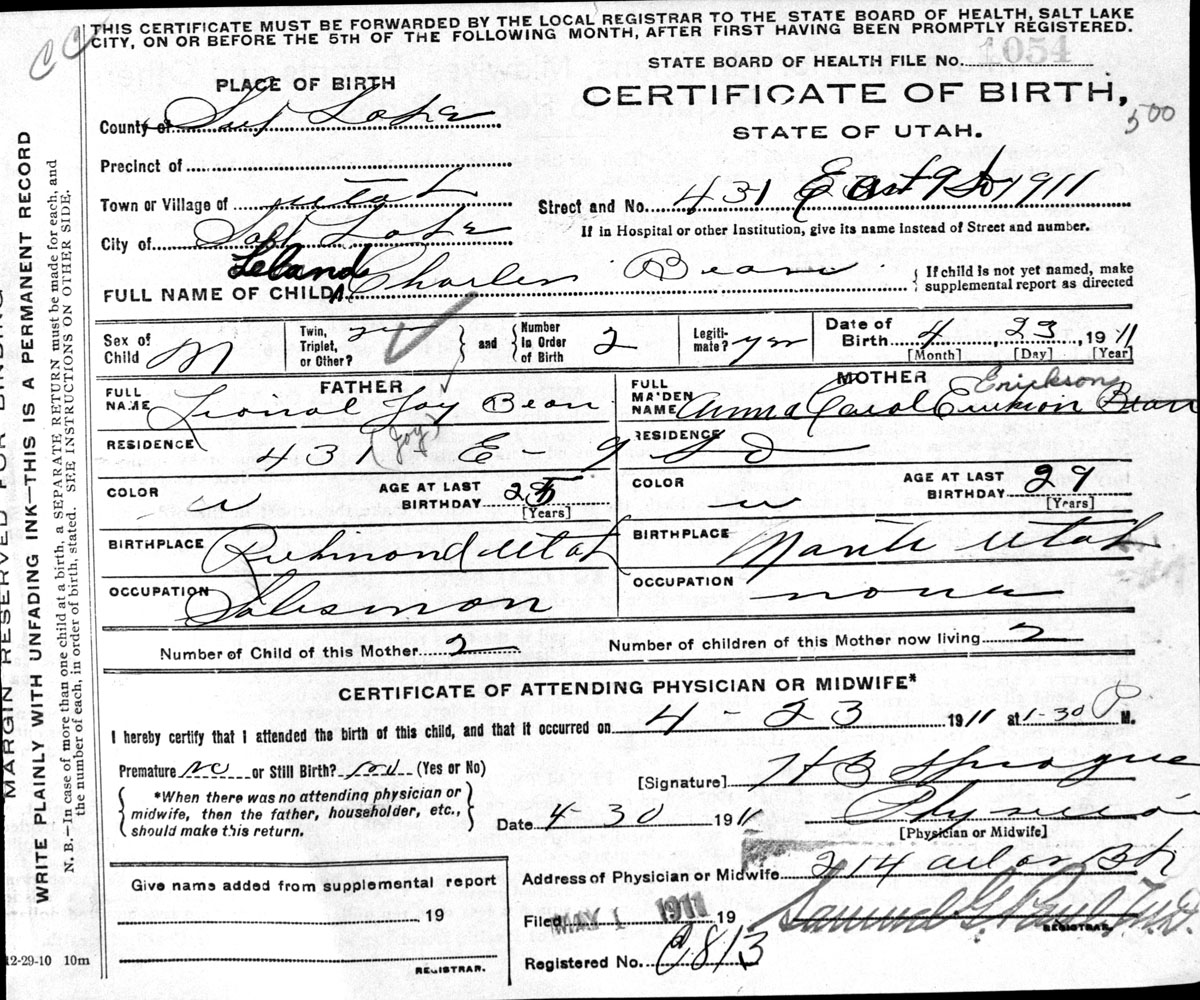 THIS CERTIFICATE MUST BE FORWARDED BY THE LOCAL REGISTRAR TO THE STATE BOARD OF HEALTH, SALT LAKE
CITY, ON OR BEFORE THE 5TH OF THE FOLLOWING MONTH, AFTER FIRST HAVING BEEN PROMPTLY REGISTERED.
CC
STATE BOARD OF HEALTH FILE No. 1054
PLACE OF BIRTH
CERTIFICATE OF BIRTH,
500
County of Salt Lake
STATE OF UTAH.
Precinct of
Town or Village of Utah
Street and No. 431 East 9 So 1911
City of Salt Lake
If in Hospital or other Institution, give its name instead of Street and number.
FULL NAME OF CHILD Leland Charles Bean
If child is not yet named, make
supplemental report as directed
Sex of
Child M
Twin,
Triplet,
or Other?
and
Number
In Order
of Birth 2
Legiti-
mate? yes
Date of
Birth 4, 23 1911
[Month] [Day] [Year]
FATHER
FULL
NAME Lional Jay Bean
(Joy)
MOTHER
FULL
MAIDEN
NAME Anna Carol Erickson Bean
Erickson
RESIDENCE 431 E - 9
RESIDENCE So
COLOR w
AGE AT LAST
BIRTHDAY 25
[Years]
COLOR w
AGE AT LAST
BIRTHDAY 29
[Years]
BIRTHPLACE Richmond Utah
BIRTHPLACE Manti Utah
OCCUPATION Salesman
OCCUPATION none
Number of Child of this Mother 2
Number of children of this Mother now living 2
CERTIFICATE OF ATTENDING PHYSICIAN OR MIDWIFE*
I hereby certify that I attended the birth of this child, and that it occurred on 4 - 23 1911 at 1-30 P M.
Premature no or Still Birth? no (Yes or No)
[Signature] H B Sprague
*When there was no attending physician or
midwife, then the father, householder, etc.,
should make this return.
Date 4-30 1911
Physician
[Physician or Midwife]
Address of Physician or Midwife 214
Give name added from supplemental report
19
REGISTRAR.
Filed MAY 1 1911 19
Samuel G. Paul, M.D.
REGISTRAR.
Registered No. 813
12-29-10 10m
MARGIN RESERVED FOR BINDING
WRITE PLAINLY WITH UNFADING INK—THIS IS A PERMANENT RECORD
N. B.—In case of more than one child at a birth, a SEPARATE RETURN must be made for each, and
the number of each, in order of birth, stated. SEE INSTRUCTIONS ON OTHER SIDE.